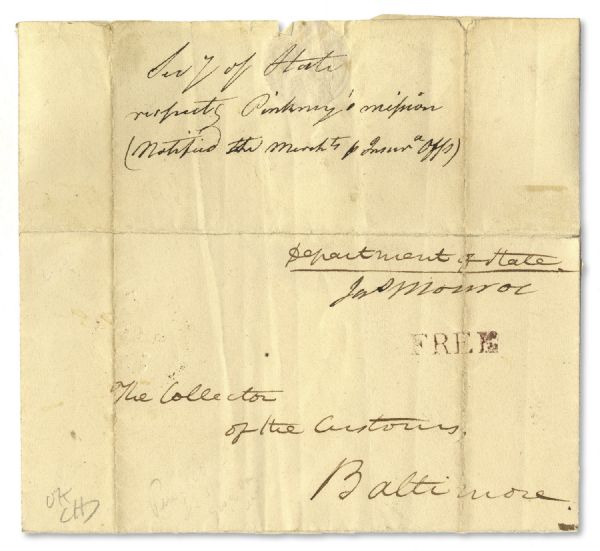 Secy of State
respectg Pinkney's mission
(Notified the Merchts & Insura Offs)
Department of State.
Jas Monroe
FREE
The Collector
of the Customs.
Baltimore.
OK